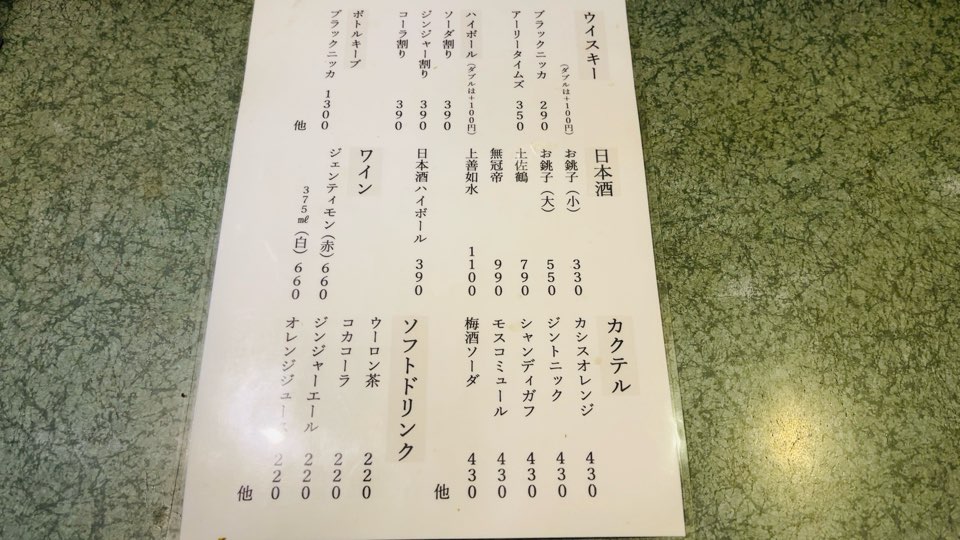 ウイスキー
(ダブルは+100円)
ブラックニッカ 290
アーリータイムズ 350
ハイボール (ダブルは+100円)
ソーダ割り 390
ジンジャー割り 390
コーラ割り 390
ボトルキープ
ブラックニッカ 1300
他
日本酒
お銚子(小) 330
お銚子(大) 550
土佐鶴 790
無冠帝 990
上善如水 1100
日本酒ハイボール 390
ワイン
ジェンティモン(赤)660
375㎖(白)660
カクテル
カシスオレンジ 430
ジントニック 430
シャンディガフ 430
モスコミュール 430
梅酒ソーダ 430
他
ソフトドリンク
ウーロン茶 220
コカコーラ 220
ジンジャーエール 220
オレンジジュース 220
他